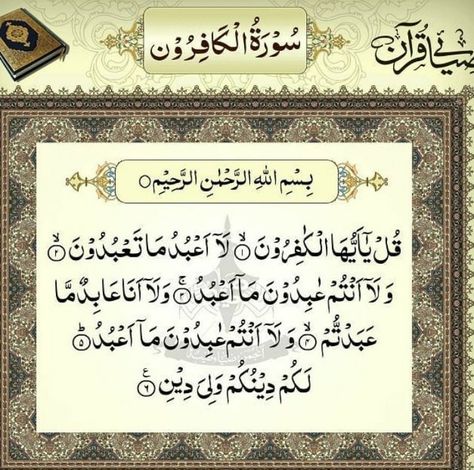 سُوۡرَةُ الۡكَافِرُوۡن
ضیائے قرآن
بِسْمِ اللهِ الرَّحْمٰنِ الرَّحِيْمِ○
قُلْ يٰٓاَيُّهَا الْكٰفِرُوْنَ ۙ﴿۱﴾ لَاۤ اَعْبُدُ مَا تَعْبُدُوْنَ ۙ﴿۲﴾
وَلَاۤ اَنْتُمْ عٰبِدُوْنَ مَاۤ اَعْبُدُ ۚ﴿۳﴾ وَلَاۤ اَنَا عَابِدٌ مَّا
عَبَدْتُّمْ ۙ﴿۴﴾ وَلَاۤ اَنْتُمْ عٰبِدُوْنَ مَاۤ اَعْبُدُ ؕ﴿۵﴾
لَكُمْ دِيْنُكُمْ وَلِيَ دِيْنِ ﴿۶﴾ ع